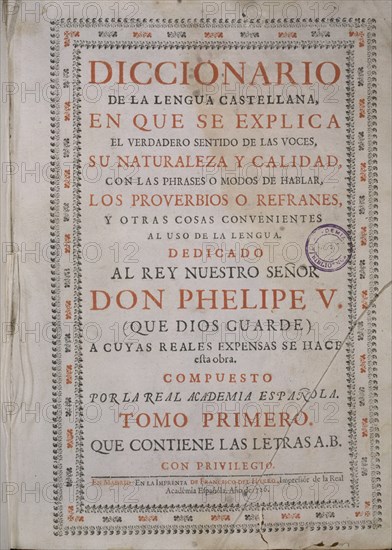 DICCIONARIO
DE LA LENGUA CASTELLANA,
EN QUE SE EXPLICA
EL VERDADERO SENTIDO DE LAS VOCES,
SU NATURALEZA Y CALIDAD,
CON LAS PHRASES O MODOS DE HABLAR,
LOS PROVERBIOS O REFRANES,
Y OTRAS COSAS CONVENIENTES
AL USO DE LA LENGUA.
DEDICADO
AL REY NUESTRO SEÑOR
DON PHELIPE V.
(QUE DIOS GUARDE)
A CUYAS REALES EXPENSAS SE HACE
esta obra.
COMPUESTO
POR LA REAL ACADEMIA ESPAÑOLA.
TOMO PRIMERO.
QUE CONTIENE LAS LETRAS A.B.
CON PRIVILEGIO.
EN MADRID. EN LA IMPRENTA DE FRANCISCO DEL HIERRO, Impressór de la Real
Académia Española. Año de 1726.
PHOTO12